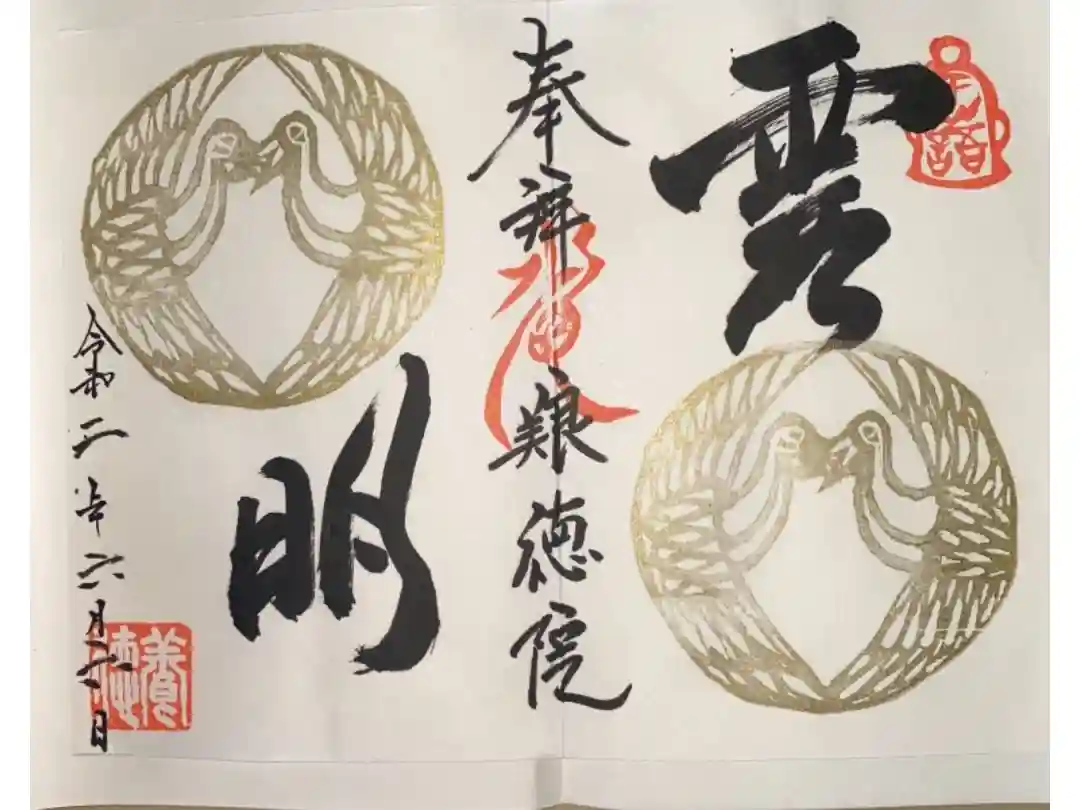 雲
奉拝 養徳院
明
令和二年六月日
養徳